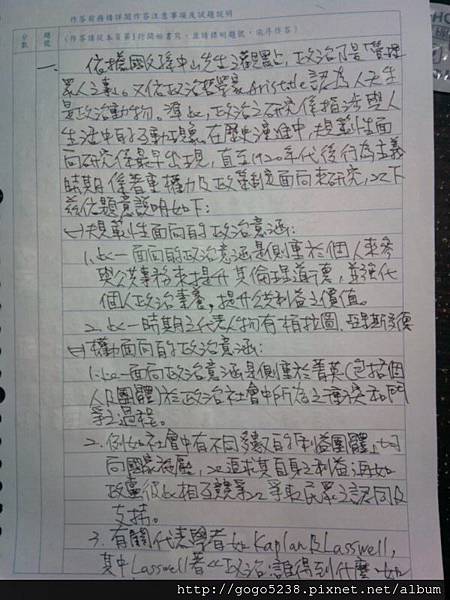 作答前務請詳閱作答注意事項及試題說明
分數
題號
(作答請從本頁第1行開始書寫，並請標明題號，依序作答)
一、
依據國父孫中山先生之觀點，政治乃是「管理
眾人之事」。又依政治哲學家Aristotle認為人天生
是政治動物。準此，政治之研究係指涉與人
生活中的互動現象。在歷史演進中，規範性面
向研究係最早出現，直至1920年代後行為主義
時期係著重權力及政策制定面向來研究，以下
茲依題意說明如下：
(一)規範性面向的政治意涵：
1.此一面向的政治意涵是側重於個人來參
與公共事務來提升其倫理道德，並強化
個人政治素養，提升公共利益之價值。
2.此一時期之代表人物有柏拉圖、亞里斯多德
(二)權力面向的政治意涵：
1.此一面向政治意涵是側重於菁英(包括個
人及團體)於政治社會中所為之衝突和鬥
爭之過程。
2.例如社會中有不同多數的利益團體，
向國家施壓，以追求其自身之利益。再如
政黨彼此相互競爭以爭取民眾之認同及
支持。
3.有關代表學者如Kaplan及Lasswell，
其中Lasswell著《政治：誰得到什麼、如
http://gogo5238.pixnet.net/blog